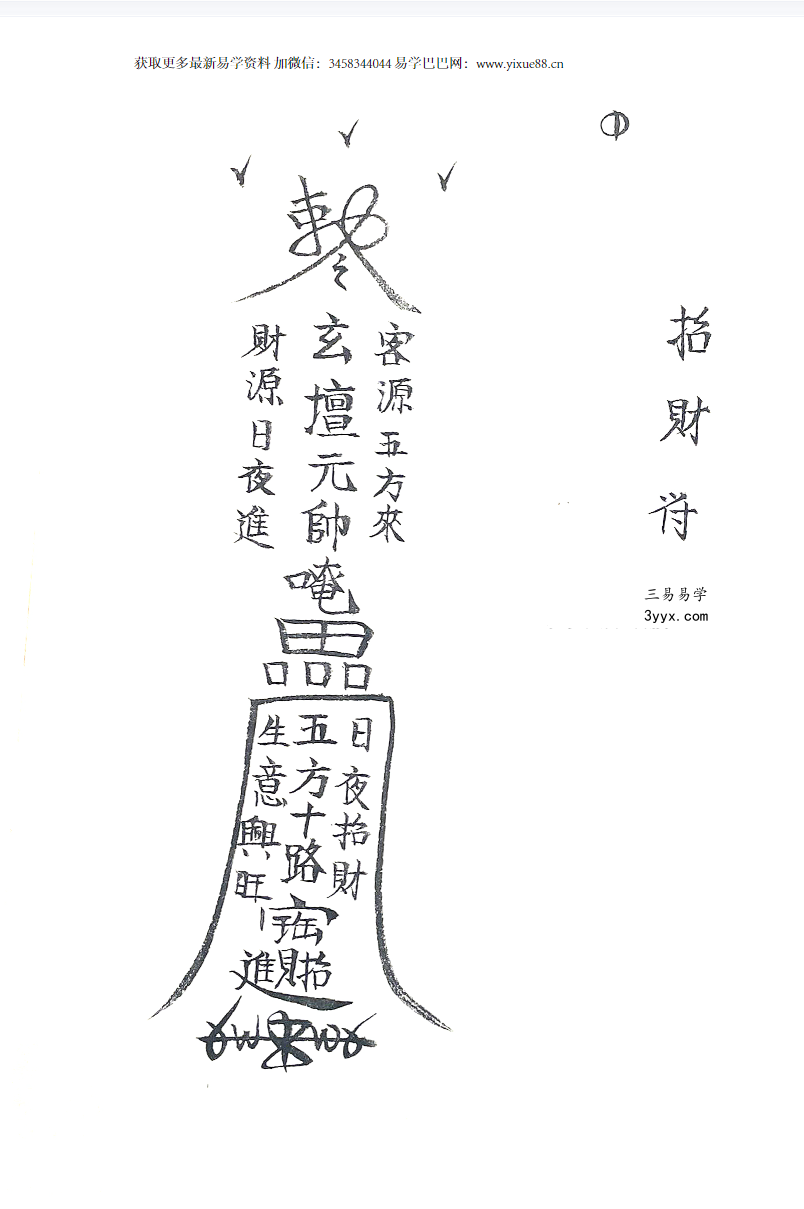 获取更多最新易学资料 加微信：3458344044 易学巴巴网：www.yixue88.cn
招財符
三易易学
3yyx.com
敕令
客源五方來
玄壇元帥
財源日夜進
唵
日夜招財
五方十路
生意興旺
招財進寶